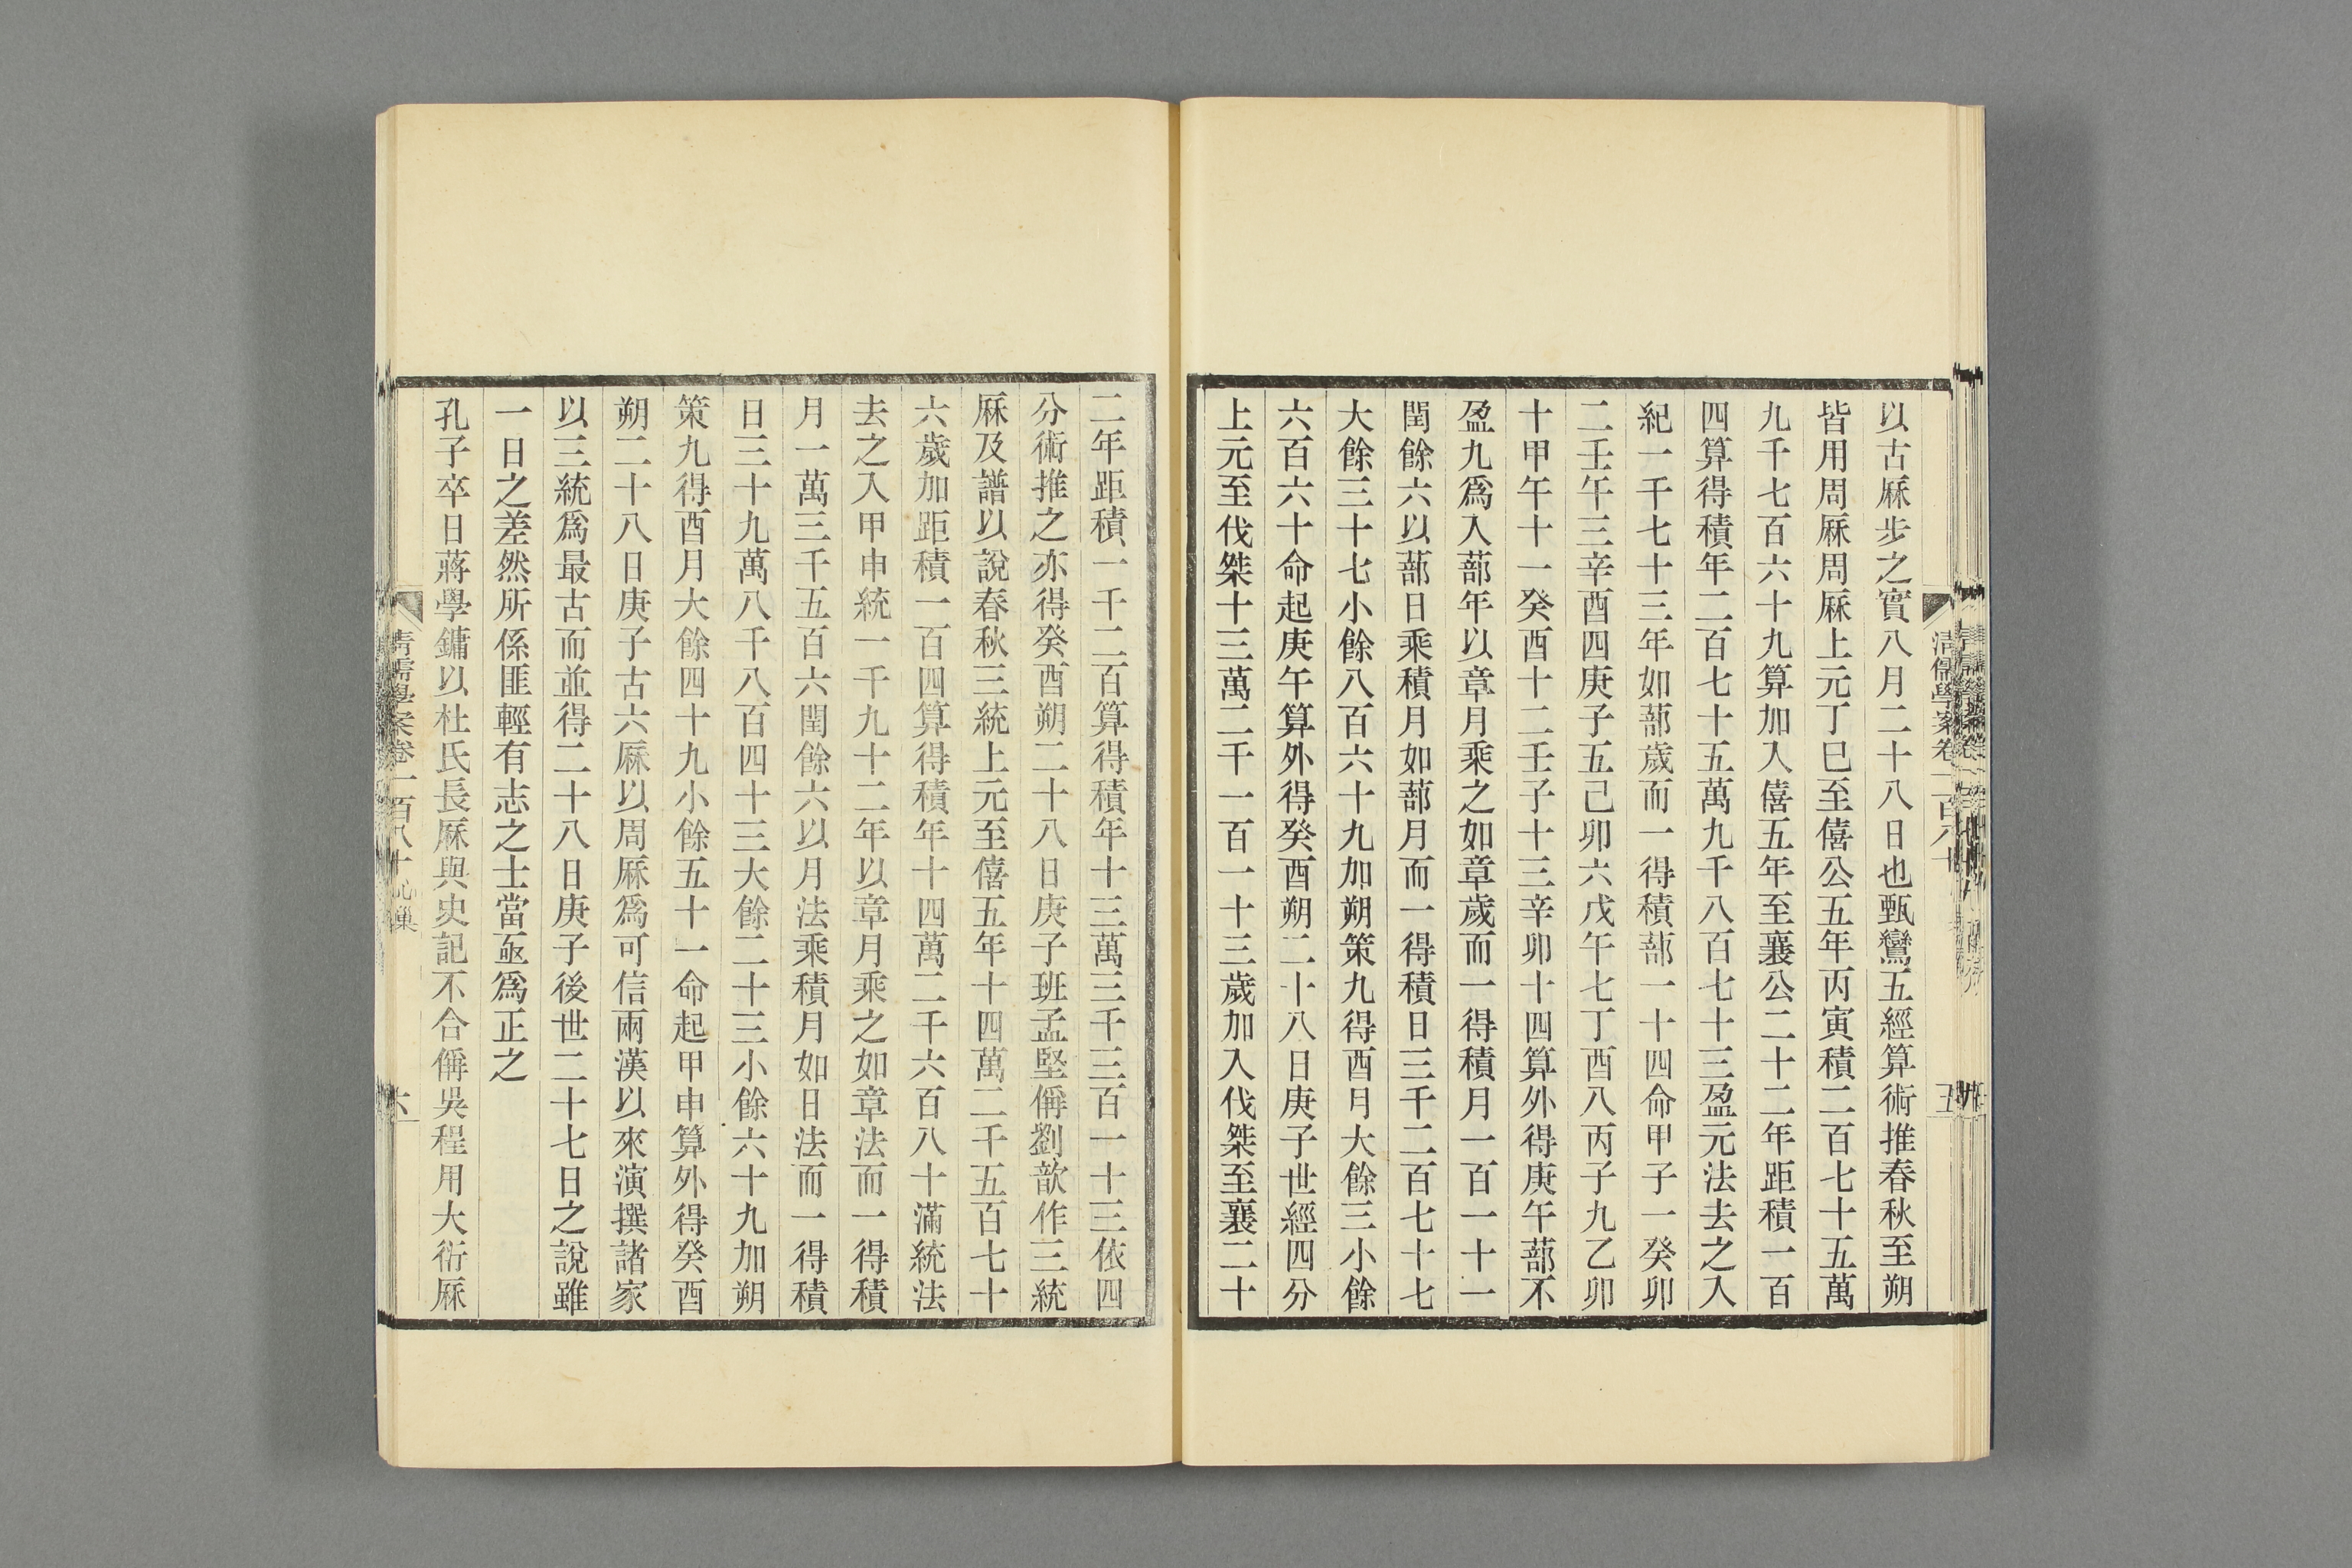 以古厤步之實八月二十八日也甄鸞五經算術推春秋至朔
皆用周厤周厤上元丁巳至僖公五年丙寅積二百七十五萬
九千七百六十九算加入僖五年至襄公二十二年距積一百
四算得積年二百七十五萬九千八百七十三盈元法去之入
紀一千七十三年如蔀歲而一得積蔀一十四命甲子一癸卯
二壬午三辛酉四庚子五己卯六戊午七丁酉八丙子九乙卯
十甲午十一癸酉十二壬子十三辛卯十四算外得庚午蔀不
盈九爲入蔀年以章月乘之如章歲而一得積月一百一十一
閏餘六以蔀日乘積月如蔀月而一得積日三千二百七十七
大餘三十七小餘八百六十九加朔策九得酉月大餘三小餘
六百六十命起庚午算外得癸酉朔二十八日庚子世經四分
上元至伐桀十三萬二千一百一十三歲加入伐桀至襄二十
清儒學案卷一百八十
五
二年距積一千二百算得積年十三萬三千三百一十三依四
分術推之亦得癸酉朔二十八日庚子班孟堅偁劉歆作三統
厤及譜以說春秋三統上元至僖五年十四萬二千五百七十
六歲加距積一百四算得積年十四萬二千六百八十滿統法
去之入甲申統一千九十二年以章月乘之如章法而一得積
月一萬三千五百六閏餘六以月法乘積月如日法而一得積
日三十九萬八千八百四十三大餘二十三小餘六十九加朔
策九得酉月大餘四十九小餘五十一命起甲申算外得癸酉
朔二十八日庚子古六厤以周厤爲可信兩漢以來演撰諸家
以三統爲最古而並得二十八日庚子後世二十七日之說雖
一日之差然所係匪輕有志之士當亟爲正之
孔子卒日蔣學鏞以杜氏長厤與史記不合偁吳程用大衍厤
清儒學案卷一百八十
六